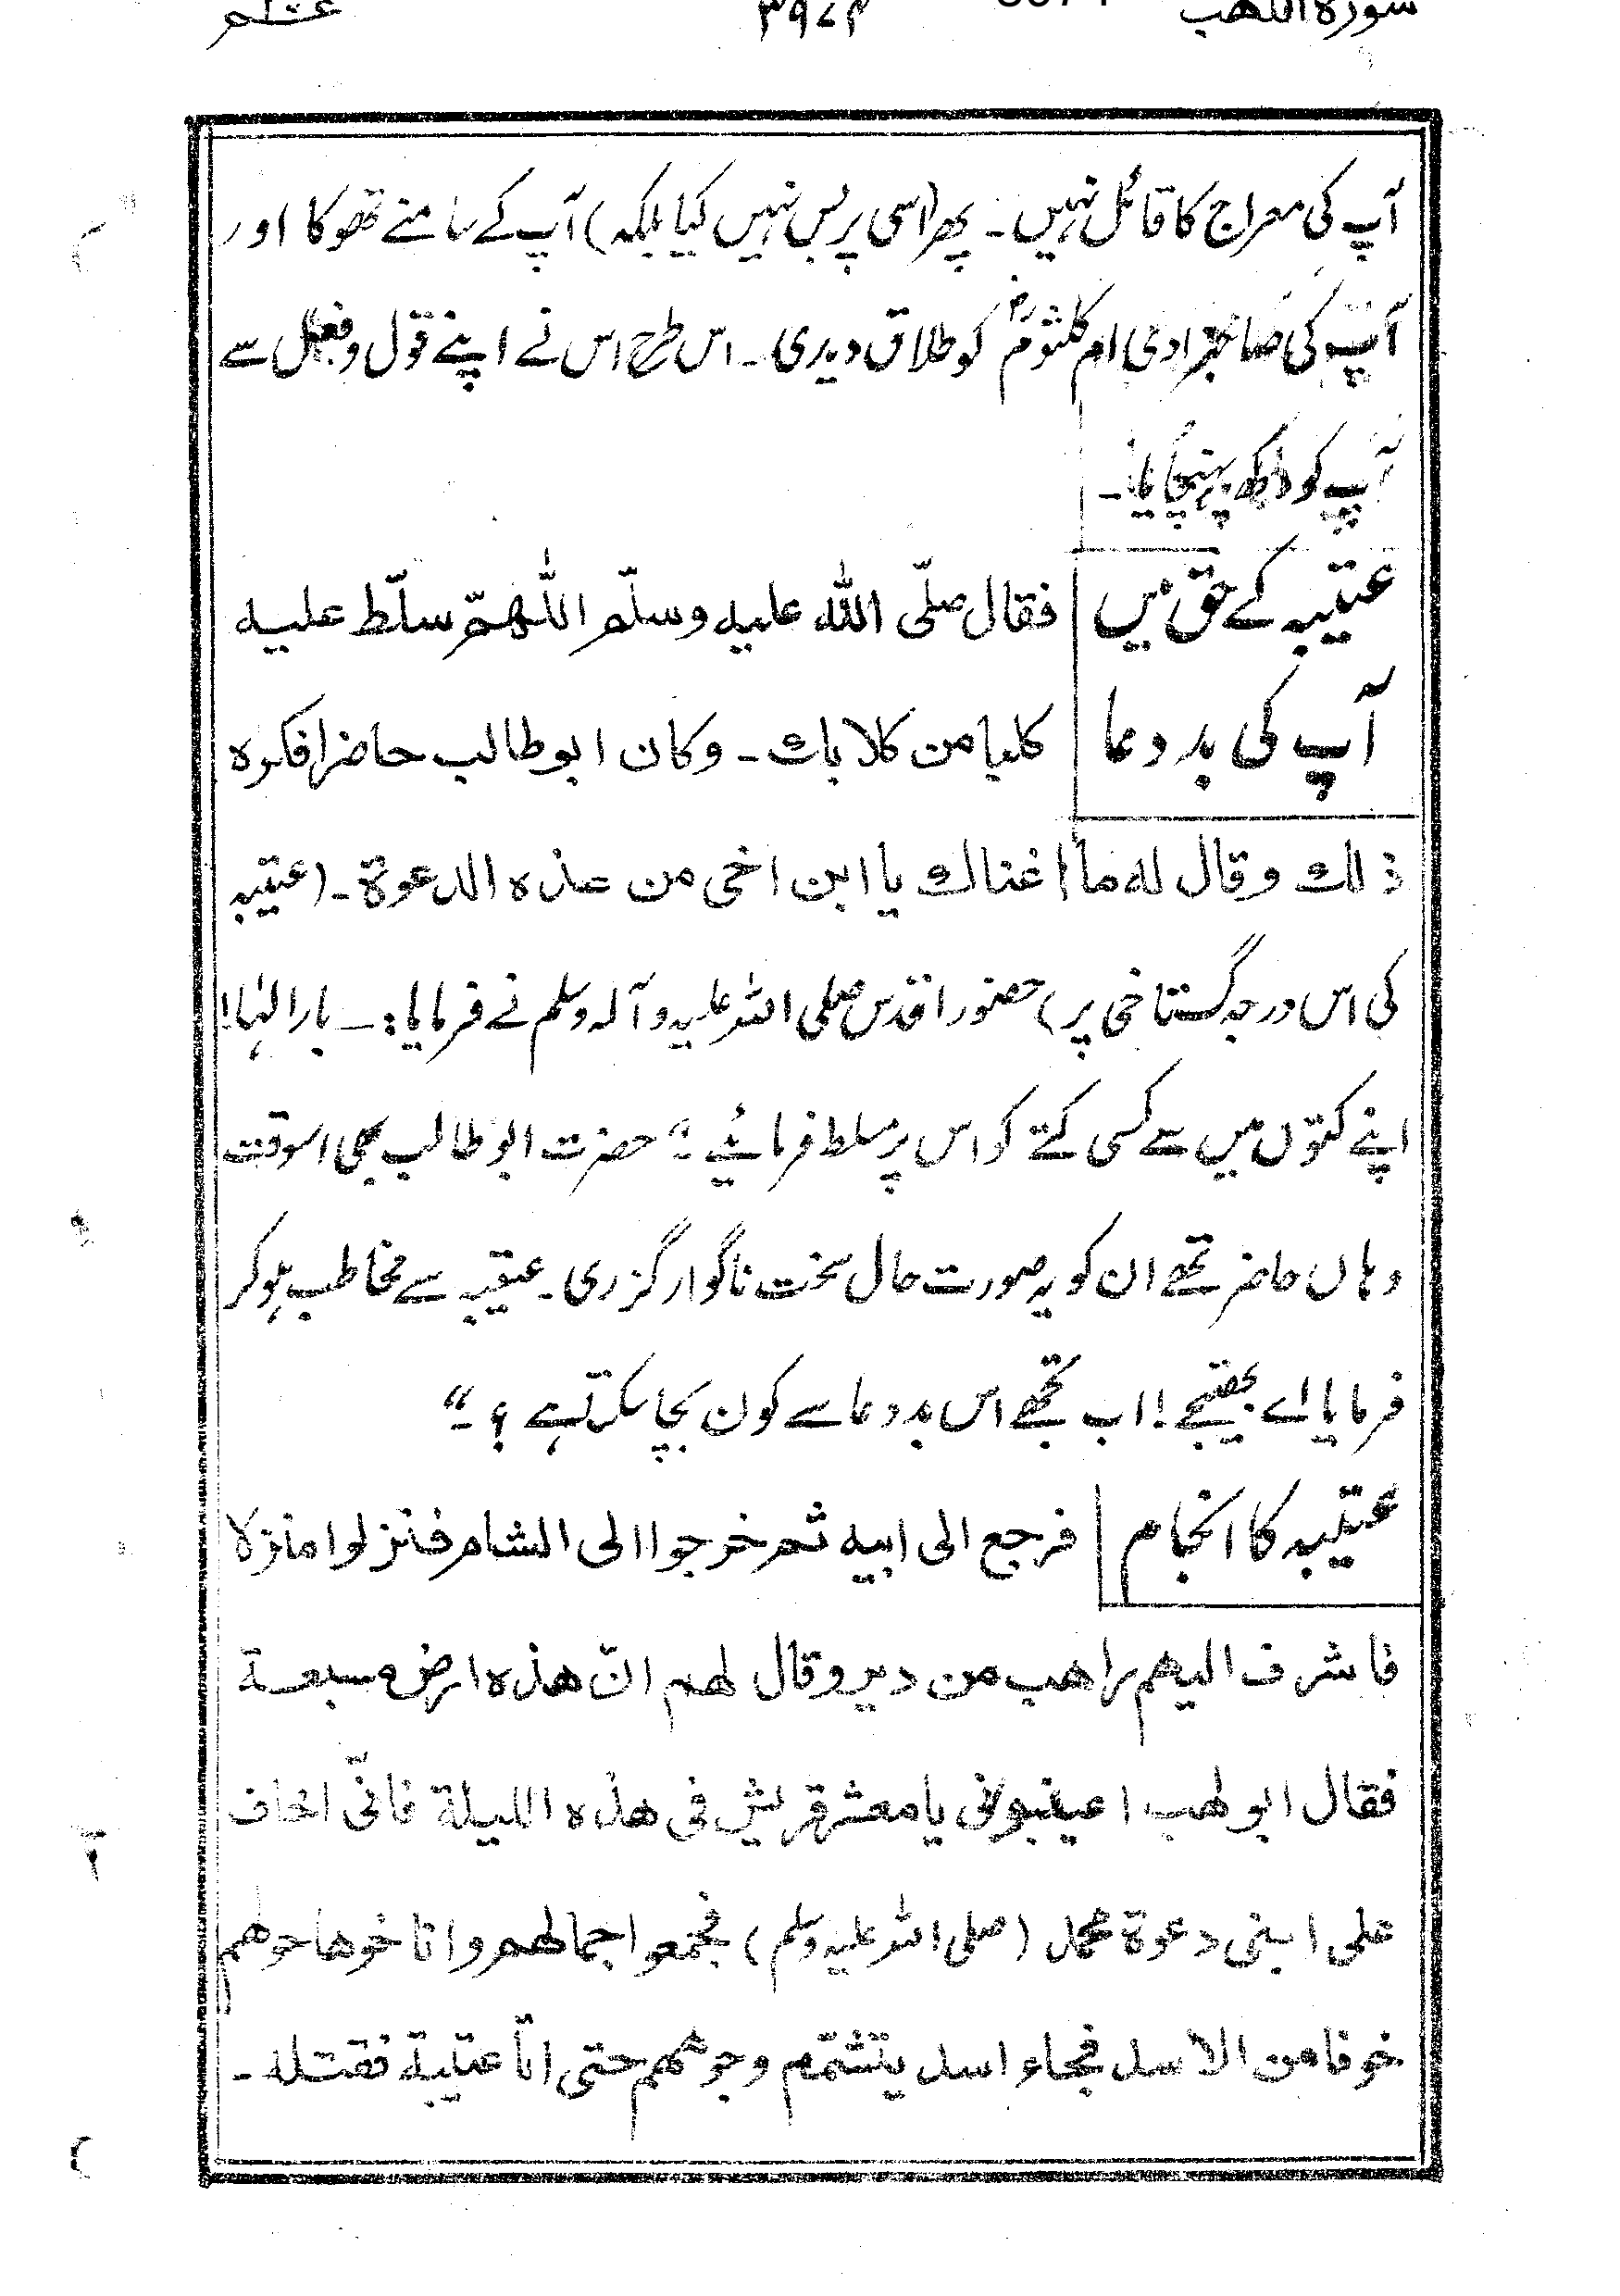 سورة اللهب ۳۹۷۴ عــم
آپ کی معراج کا قائل نہیں۔ پھر (اسی پر بس نہیں کیا بلکہ) آپ کے سامنے تھوکا اور
آپ کی صاحبزادی ام کلثومؓ کو طلاق دیدی۔ اس طرح اس نے اپنے قول و فعل سے
آپ کو دکھ پہنچایا۔
عتیبہ کے حق میں فقال صلّی اللہ علیہ وسلّم اللّٰھمّ سلّط علیہ
آپ کی بد دعا کلبا من کلابك۔ وکان ابوطالب حاضرا فکرہ
ذلك وقال لہ ما اغناك یا ابن اخی من ھذہ الدعوة۔ (عتیبہ
کی اس درجہ گستاخی پر) حضور اقدس صلی اللہ علیہ وآلہ وسلم نے فرمایا:۔ بارالٰہا!
اپنے کتوں میں سے کسی کتے کو اس پر مسلط فرمائیے۔“ حضرت ابوطالب بھی اسوقت
وہاں حاضر تھے ان کو یہ صورت حال سخت ناگوار گزری۔ عتیبہ سے مخاطب ہو کر
فرمایا اے بھتیجے! اب تجھے اس بد دعا سے کون بچا سکتا ہے؟۔“
عتیبہ کا انجام فرجع الی ابیہ ثم خرجوا الی الشام فنزلوا منزلا
فاشرف الیھم راھب من دیر وقال لھم انّ ھذہ ارض مسبعة
فقال ابولھب اعینونی یا معشر قریش فی ھذہ اللیلة فانّی اخاف
علی ابنی دعوة محمد (صلی اللہ علیہ وسلم) فجمعوا جمالھم واناخوھا حولھم
خوفا من الاسد فجاء اسد یتشمّم وجوھھم حتی اتٰا عتیبة فقتلہ۔